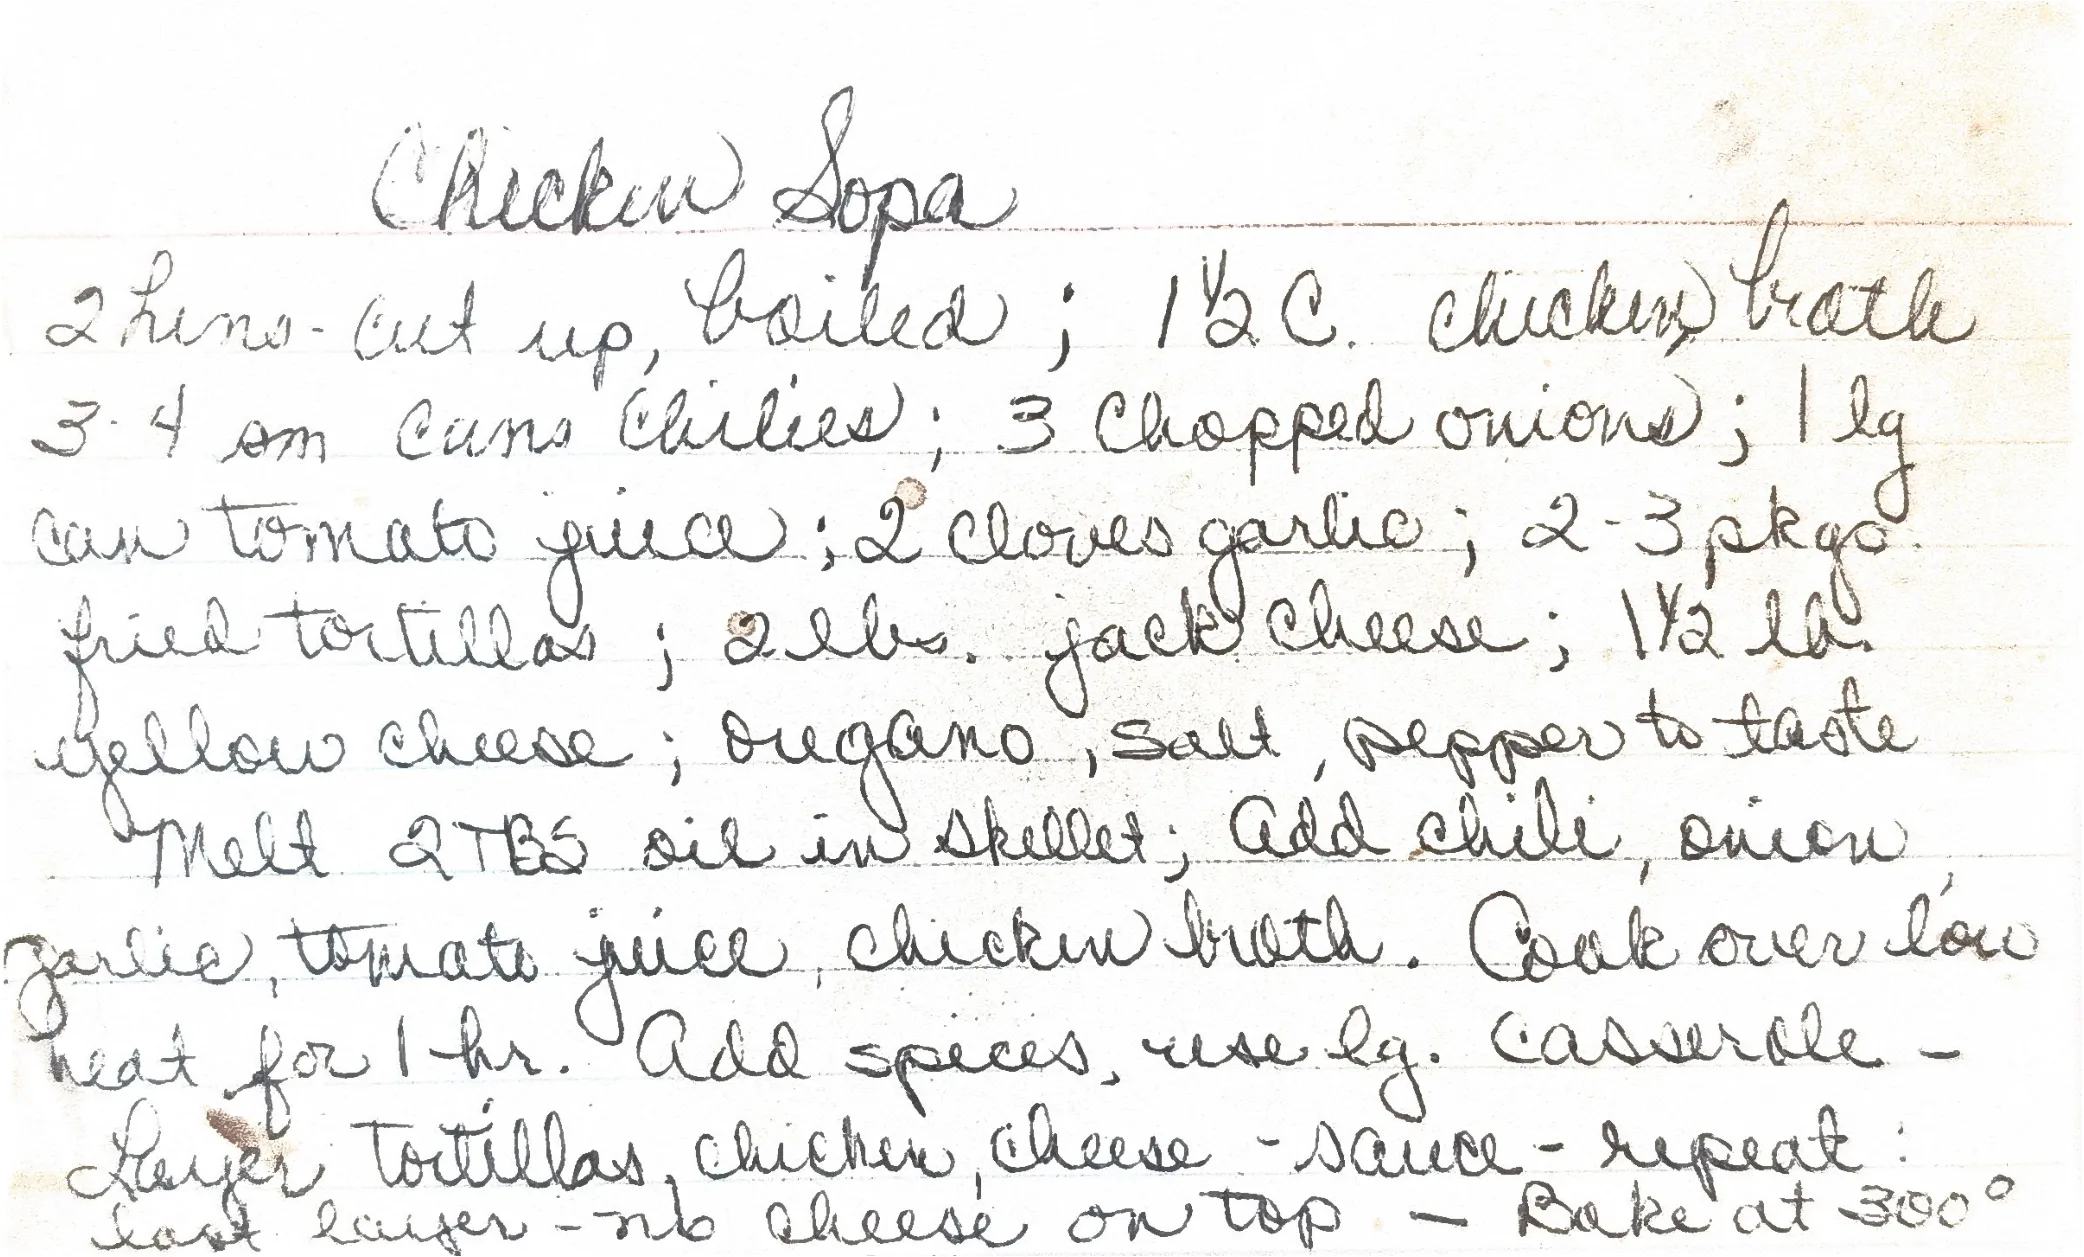 Chicken Sopa
2 hens - cut up, boiled ; 1 1/2 C. chicken broth
3-4 sm cans chilies ; 3 chopped onions ; 1 lg
can tomato juice ; 2 cloves garlic ; 2-3 pkgs.
fried tortillas ; 2 lbs. jack cheese ; 1 1/2 lb.
yellow cheese ; oregano , salt , pepper to taste
Melt 2 TBS oil in skillet ; Add chili , onion ,
garlic, tomato juice, chicken broth. Cook over low
heat for 1 hr. Add spices, use lg. casserole -
Layer tortillas, chicken, cheese - sauce - repeat :
last layer - no cheese on top - Bake at 300°